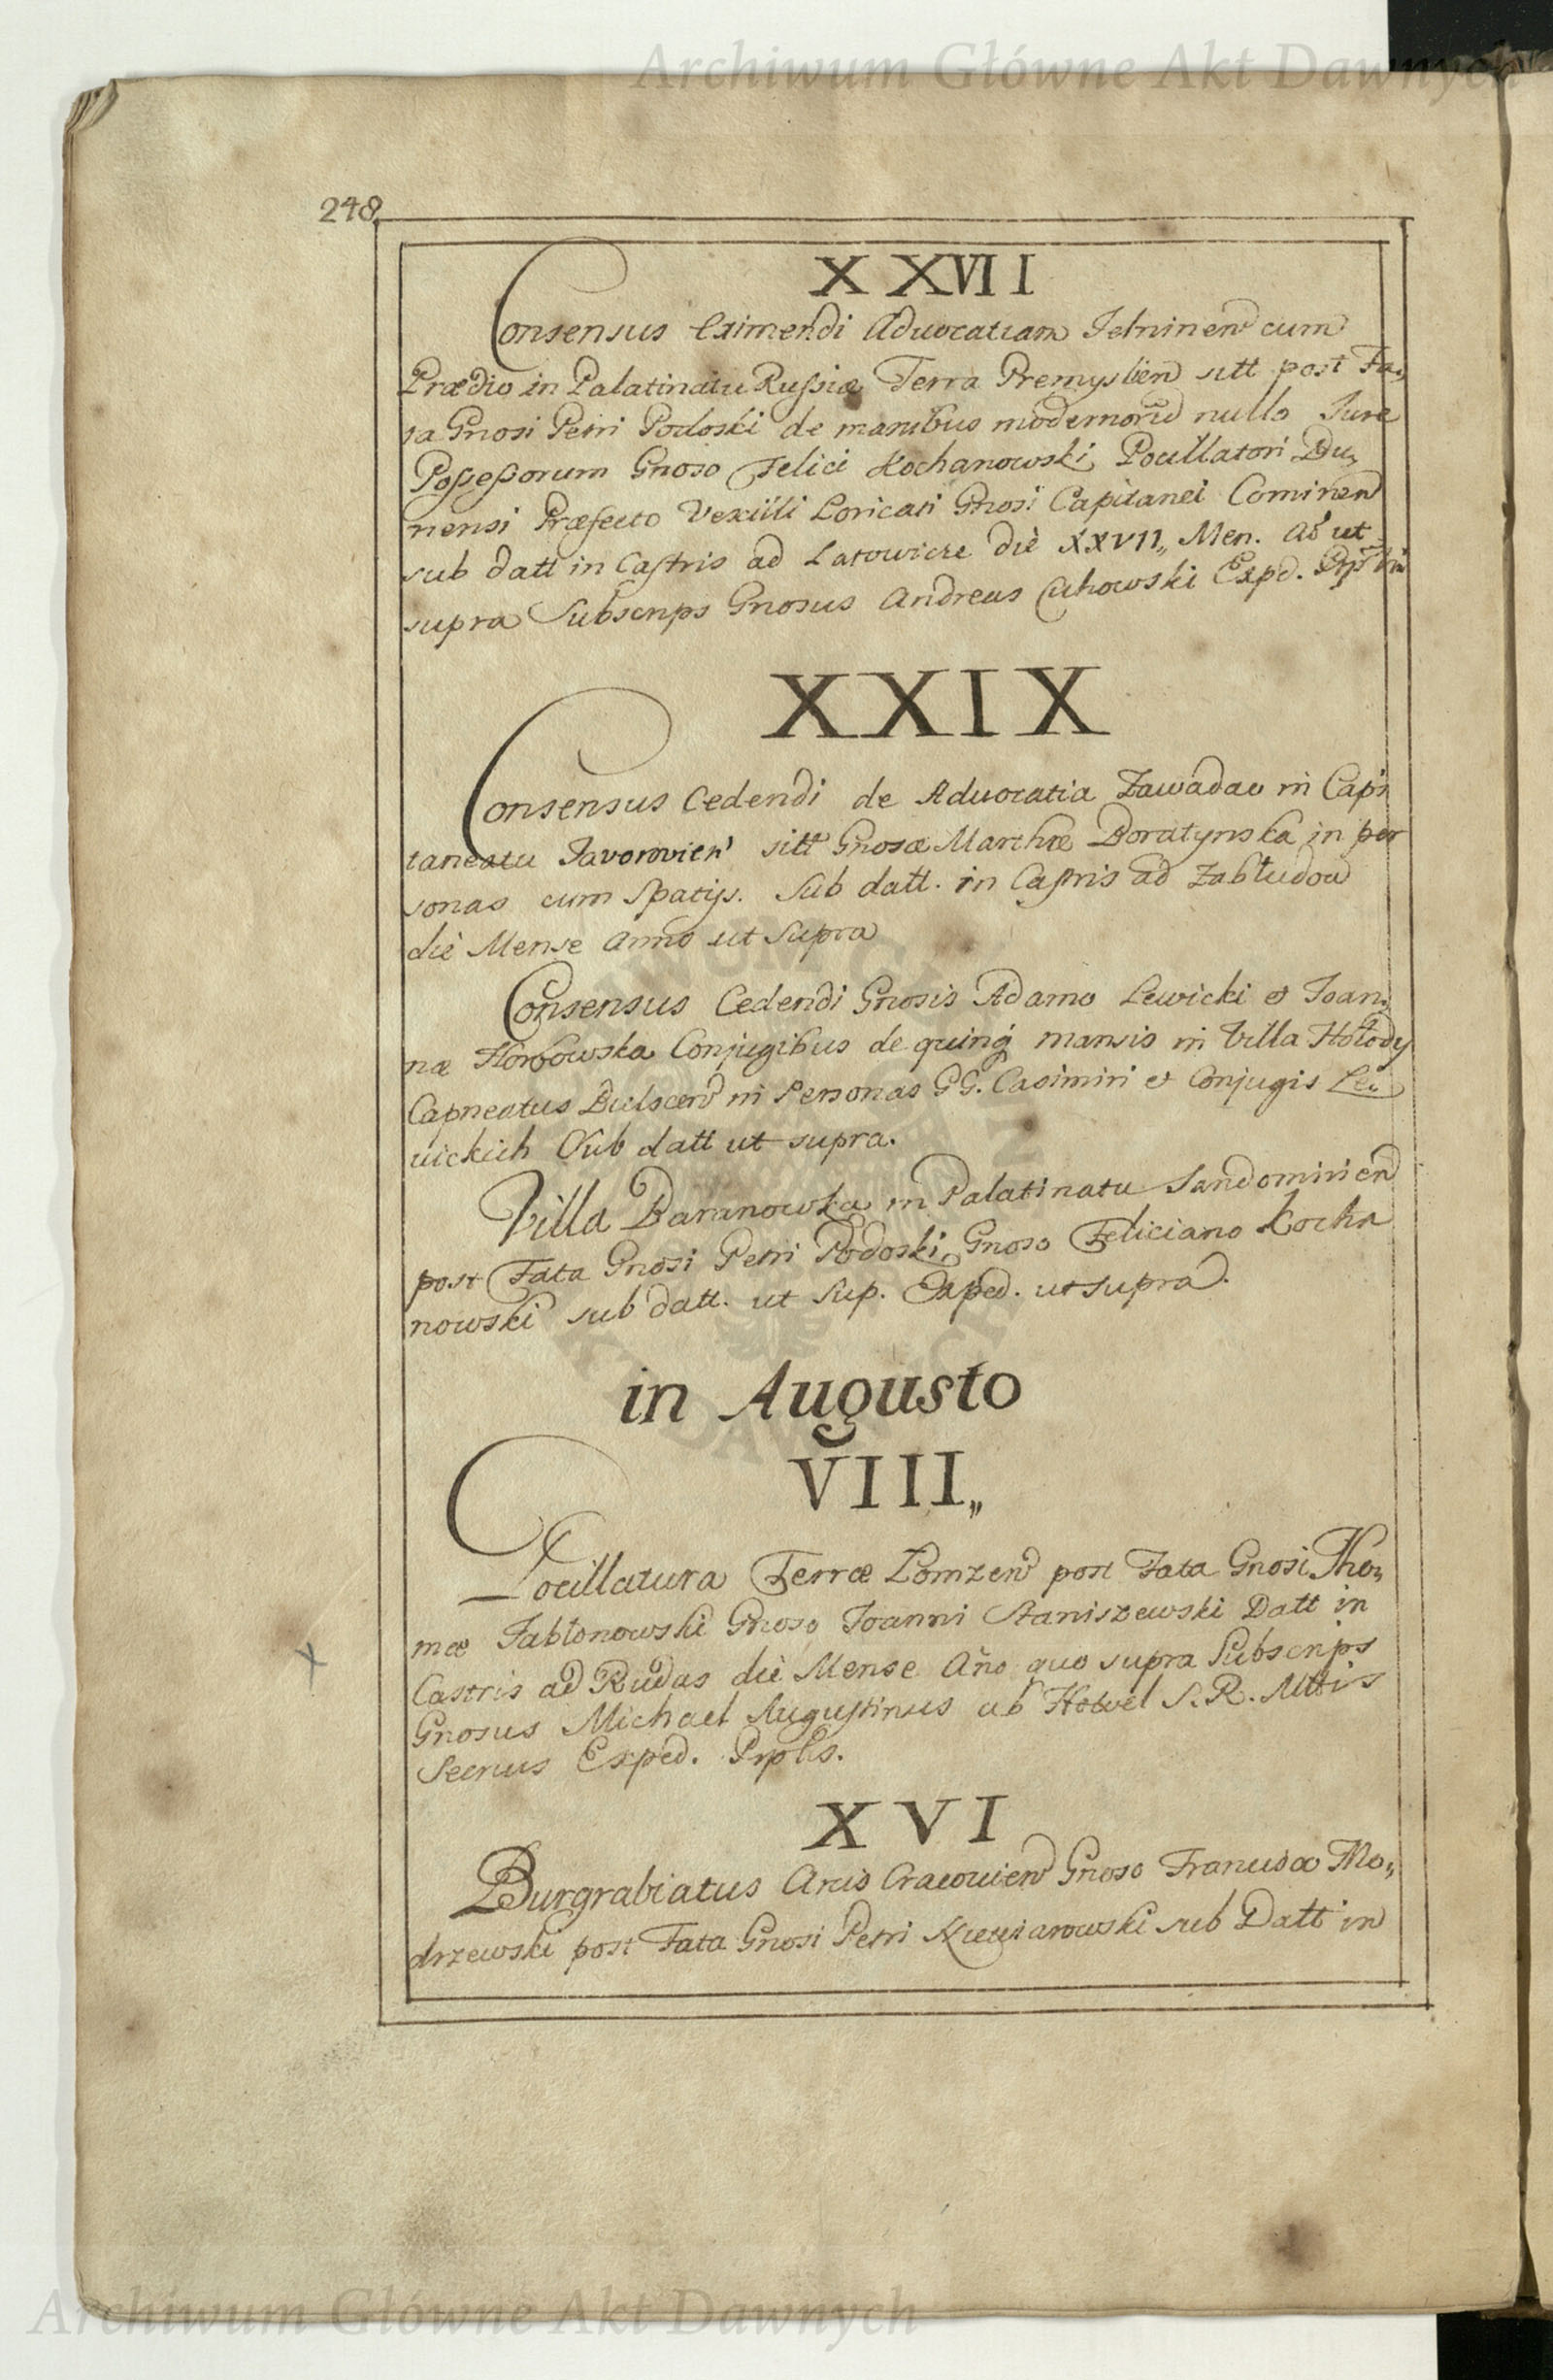 Archiwum Główne Akt Dawnych
248.
XXVII
Consensus Eximendi Advocatiam Jelninen cum
Prædio in Palatinatu Russiæ Terra Premyslien sitt post Fa„
ta Gnosi Petri Podoski de manibus modernorū nullo Jure
Possessorum Gnoso Felici Kochanowski Pocillatori Du„
nensi Præfecto Vexilli Loricati Gnosi Capitanei
sub datt in Castris ad Latowicze die XXVII„ Men. Ao ut
supra Subscrips Gnosus Andreas Exped.
XXIX
Consensus Cedendi de Advocatia Zawadao in Capi
taneatu Javorovien sitt Gnosæ Marthæ Boratynska in per
sonas cum Spatijs. Sub datt. in Castris ad Zabłudow
die Mense Anno ut Supra
Consensus Cedendi Gnosis Adamo Lewicki et Joan„
næ Horbowska Conjugibus de quinq mansis in Villa Hołody
Capneatus Bulscen in Personas GG. Casimiri et Conjugis Le„
wickich Sub datt ut supra.
Villa Baranowska in Palatinatu Sandomirien
post Fata Gnosi Petri Podoski Gnoso Feliciano Kocha
nowski sub datt. ut Sup. Exped. ut supra.
in Augusto
VIII„
Pocillatura Terræ Łomzen post Fata Gnosi Tho„
mæ Jabłonowski Gnoso Joanni Staniszewski Datt in
Castris ad Rudas die Mense Año quo supra Subscrips
Gnosus Michael Augustinus ab Hotvel S. R. Mttis
Secrius Exped. Prplis.
XVI
Burgrabiatus Arcis Cracovien Gnoso Francisco Mo„
drzewski post Fata Gnosi Petri sub Datt in
Archiwum Główne Akt Dawnych